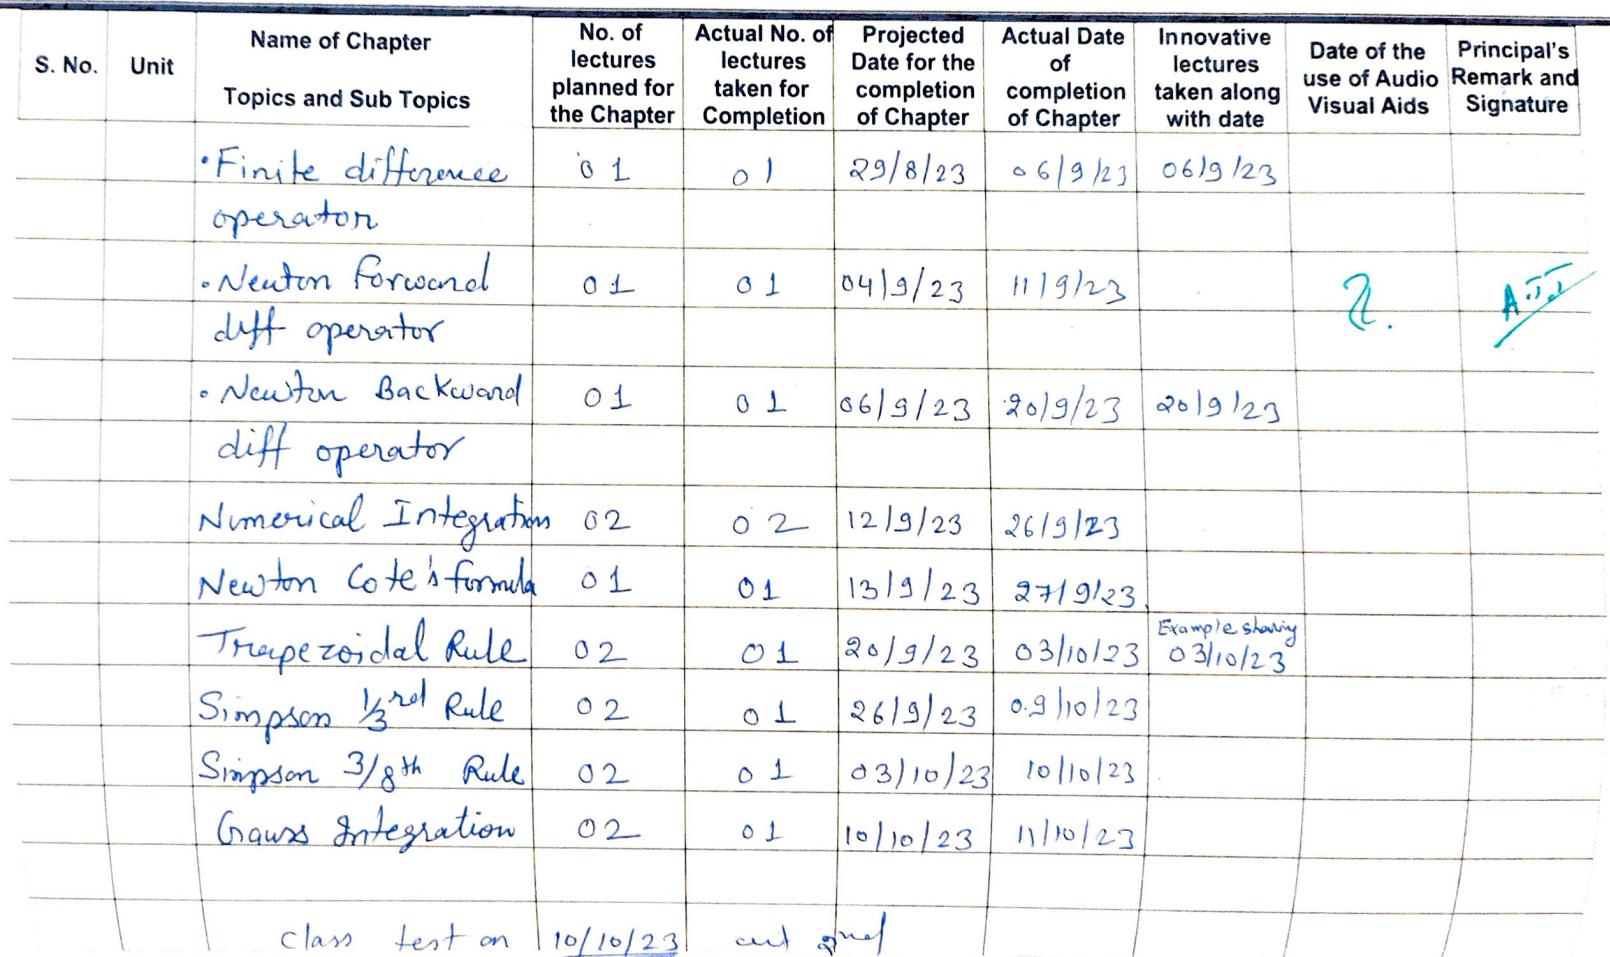 S. No. Unit Name of Chapter Topics and Sub Topics No. of lectures planned for the Chapter Actual No. of lectures taken for Completion Projected Date for the completion of Chapter Actual Date of completion of Chapter Innovative lectures taken along with date Date of the use of Audio Visual Aids Principal's Remark and Signature
• Finite difference 01 01 29/8/23 06/9/23 06/9/23
operator
• Newton Forward 01 01 04/9/23 11/9/23
diff operator
• Newton Backward 01 01 06/9/23 20/9/23 20/9/23
diff operator
Numerical Integrations 02 02 12/9/23 26/9/23
Newton Cote's formula 01 01 13/9/23 27/9/23
Example sharing
Trapezoidal Rule 02 01 20/9/23 03/10/23 03/10/23
Simpson 1/3rd Rule 02 01 26/9/23 09/10/23
Simpson 3/8th Rule 02 01 03/10/23 10/10/23
Gauss Integration 02 01 10/10/23 11/10/23
Class test on 10/10/23